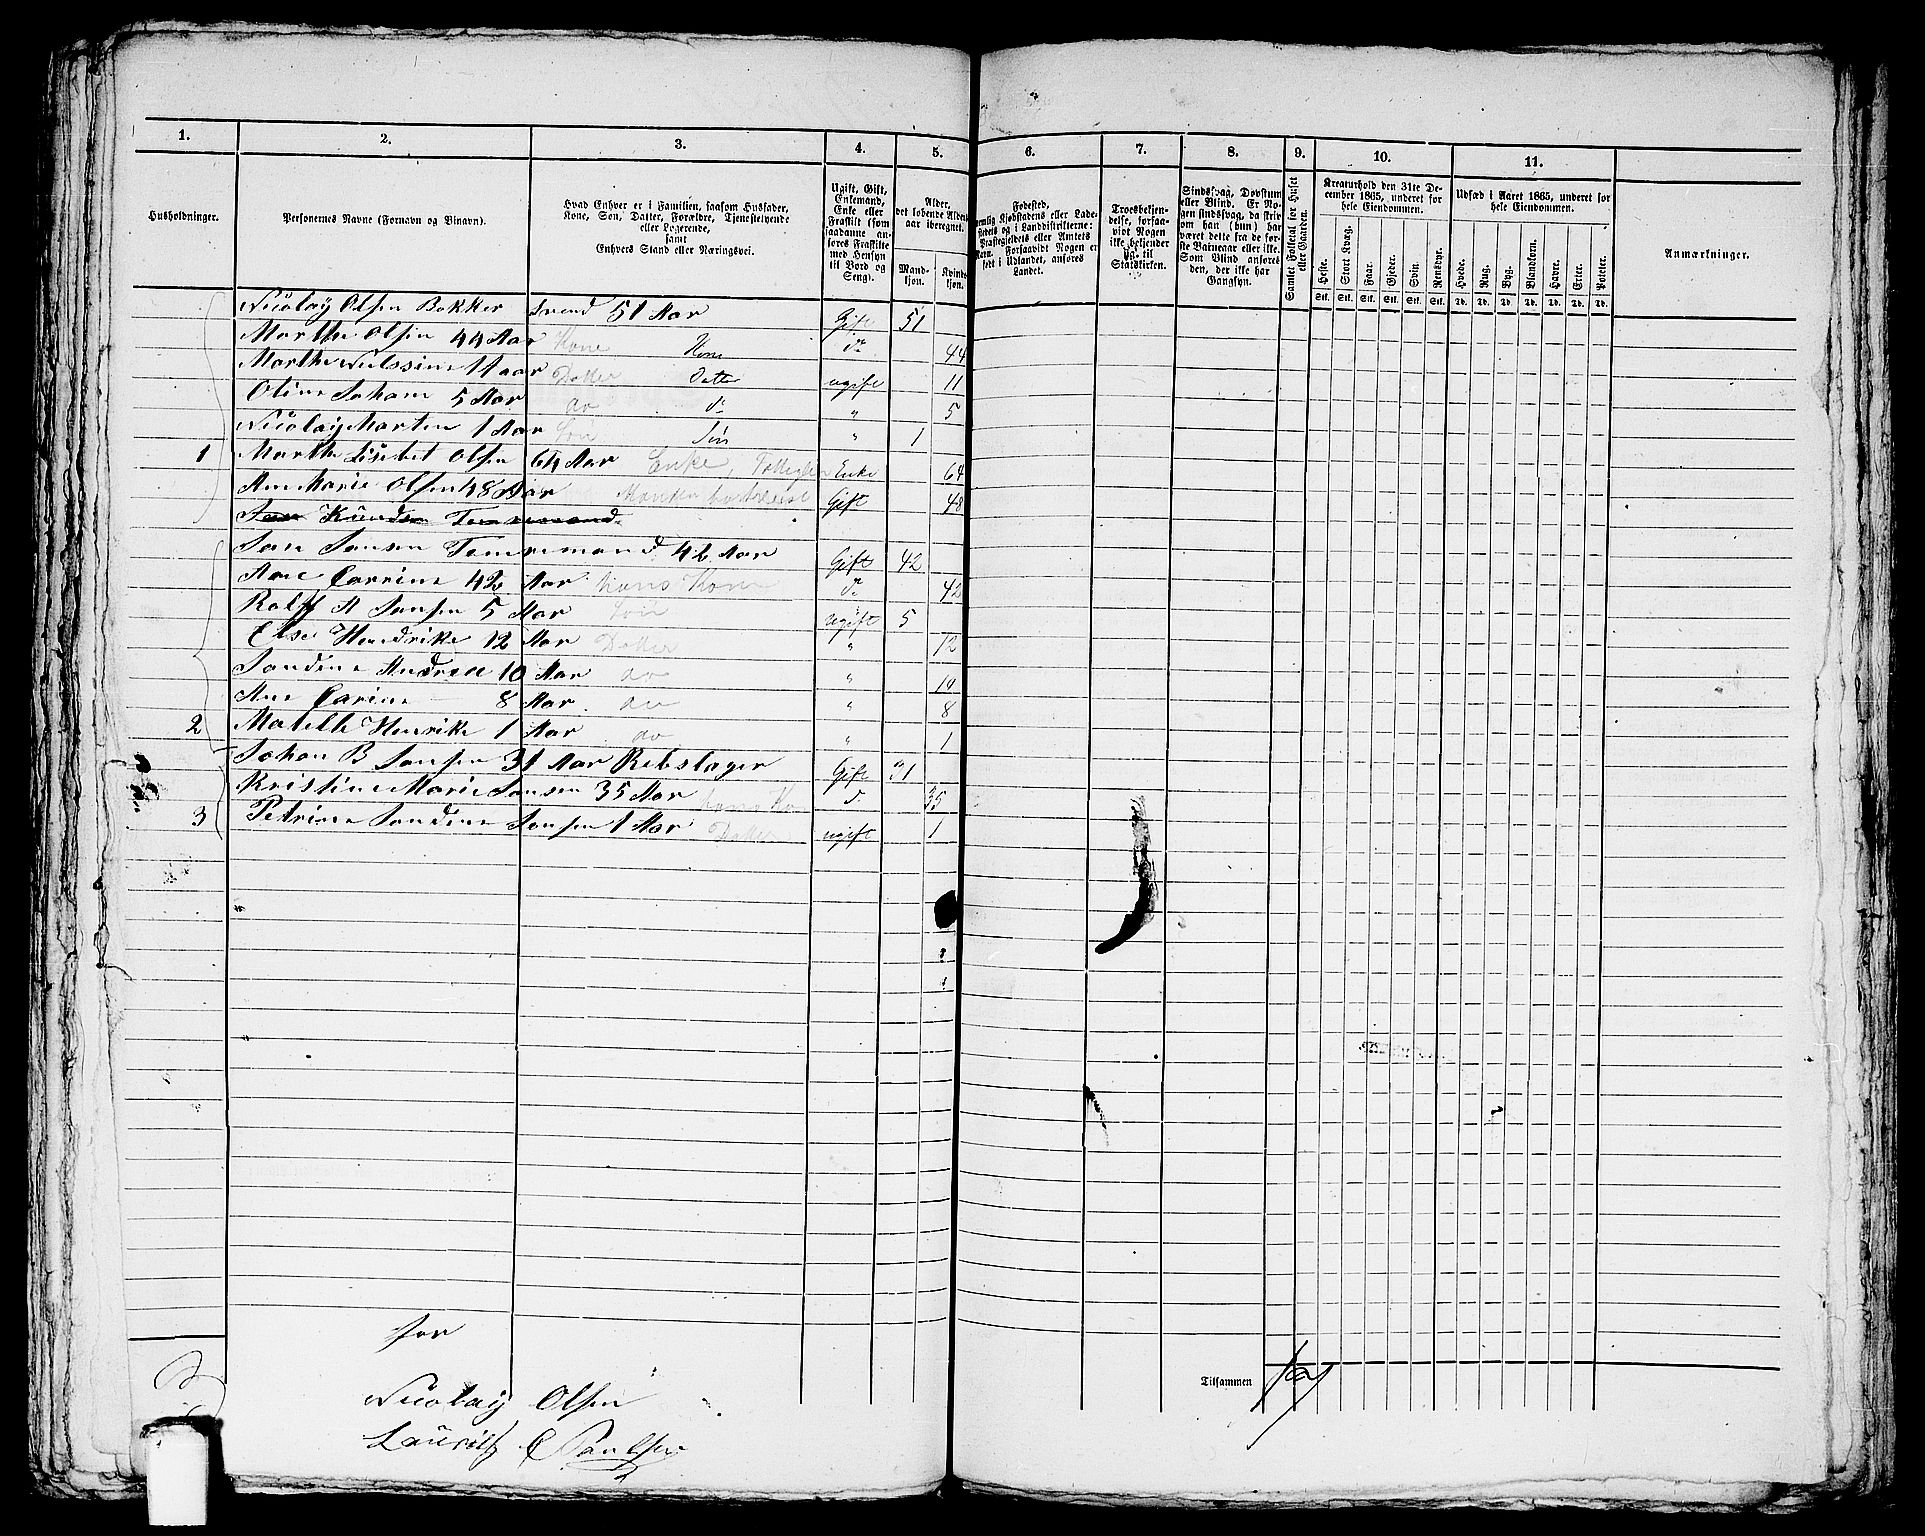 1. 2. 3. 4. 5. 6. 7. 8. 9. 10. 11.
Husholdninger.
Personernes Navne (Fornavn og Binavn).
Hvad Enhver er i Familien, saasom Husfader,
Kone, Søn, Datter, Forældre, Tjenestetyende
eller Logerende,
samt
Enhvers Stand eller Næringsvei.
Ugift, Gift,
Enkemand,
Enke eller
Fraskilt (som
saadanne an-
føres Fraskilte
med Hensyn
til Bord og
Seng).
Alder,
det løbende Alders-
aar iberegnet.
Mand-
kjøn.
Kvinde-
kjøn.
Fødested,
nemlig Kjøbstadens eller Lade-
stedets og i Landdistrikterne:
Præstegjeldets eller Amtets
Navn. Forsaavidt Nogen er
født i Udlandet, anføres
Landet.
Troesbekjen-
delse, forsaa-
vidt Nogen
ikke bekjender
sig til
Statskirken.
Sindssvag, Døvstum
eller Blind. Er No-
gen sindssvag, da skriv
om han (hun) har
været dette fra de før-
ste Barneaar eller ikke.
Som Blind anføres
den, der ikke har
Gangsyn.
Samlet Folketal for Huset
eller Gaarden.
Kreaturhold den 31te De-
cember 1865, underet for
hele Eiendommen.
Heste. Stort Kvæg. Faar. Gjeder. Svin. Rensdyr.
Stk. Stk. Stk. Stk. Stk. Stk.
Udsæd i Aaret 1865, underet for
hele Eiendommen.
Hvede. Rug. Byg. Blandkorn. Havre. Erter. Poteter.
Td. Td. Td. Td. Td. Td. Td.
Anmærkninger.
Nicolaÿ Olsen Bøkker Svend 51 Aar Gift 51
Marthe Olsen 44 Aar Kone Kone do 44
Marthe Nielssine 11 aar Datter Datter ugift 11
Oline Johane 5 Aar do do " 5
Nicolaÿ Marten 1 Aar Søn Søn " 1
1 Marthe Lisebet Olsen 64 Aar Enke, Enke 64
Ane Marie Olsen 48 Aar Manden Gift 48
Jens Knudsen Tømmermand
Jens Jensen Tømremand 42 Aar Gift 42
Ane Carrine 42 Aar hans Kone do 42
Rolf A Jensen 5 Aar Søn ugift 5
Else Hendrike 12 Aar Datter " 12
Jondine Andrea 10 Aar do " 10
Ane Carine 8 Aar do " 8
2 Matelle Henrike 1 Aar do " 1
Johan B Jensen 31 Aar Rebslager Gift 31
Kristine Marie Jansen 35 Aar hans Kone do 35
3 Petrine Jondine Jensen 1 Aar Datter ugift 1
for
Nicolaÿ Olsen
Lauritz C Paulsen
Tilsammen